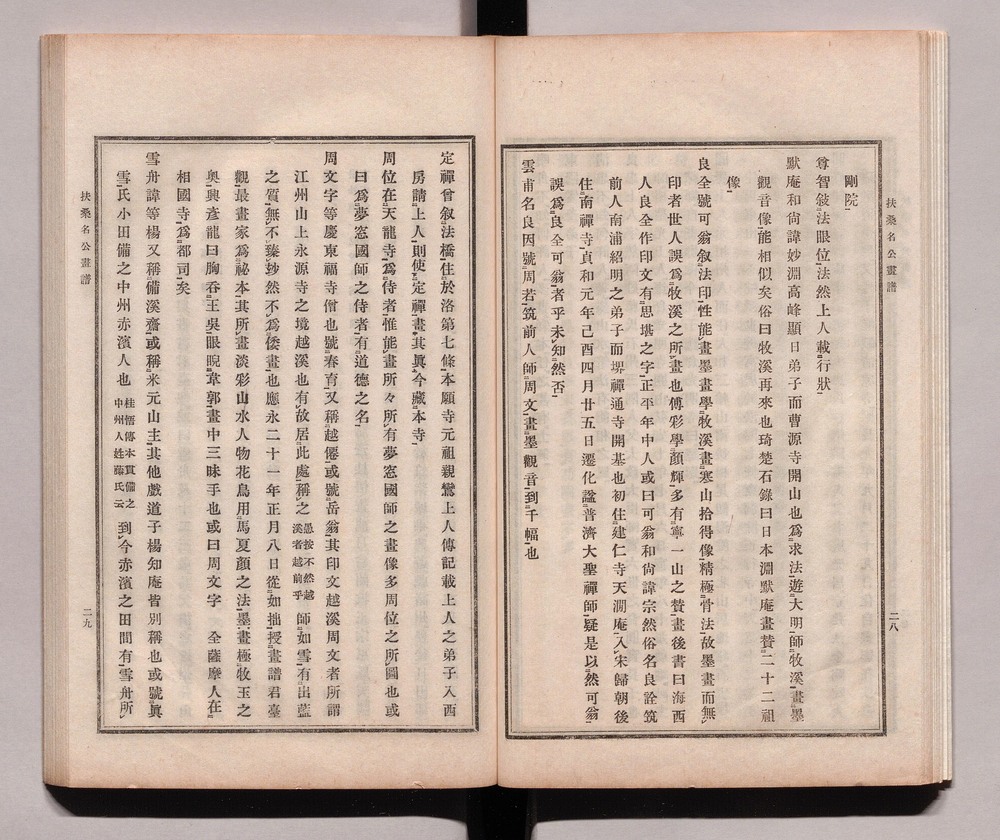 扶桑名公畫譜
二八
剛院
尊智敍法眼位法然上人載行狀
默庵和尙諱妙澗高峰顯日弟子而曹源寺開山也爲求法遊大明師牧溪畫墨
觀音像能相似矣俗曰牧溪再來也琦楚石錄曰日本澗默庵畫贊二十二祖
像
良全號可翁叙法印性能畫墨畫學牧溪畫寒山拾得像精極骨法故墨畫而無
印者世人誤爲牧溪之所畫也傅彩學顏輝多有寧一山之贊畫後書曰海西
人良全作印文有思堪之字正平年中人或曰可翁和尙諱宗然俗名良詮筑
前人南浦紹明之弟子而堺禪通寺開基也初住建仁寺天澗庵入宋歸朝後
住南禪寺貞和元年己酉四月廿五日遷化諡普濟大聖禪師疑是以然可翁
誤爲良全可翁者乎未知然否
雲甫名良因號周若筑前人師周文畫墨觀音到千幅也
定禪曾叙法橋住於洛第七條本願寺元祖親鸞上人傳記載上人之弟子入西
房請上人則使定禪畫其眞今藏本寺
周位在天龍寺爲侍者惟能畫所々所有夢窓國師之畫像多周位之所圖也或
曰爲夢窓國師之侍者有道德之名
周文字等慶東福寺僧也號春育又稱越僊或號岳翁其印文越溪周文者所謂
江州山上永源寺之境越溪也有故居此處稱之愚按不然越溪者越前乎師如雪有出藍
之質無不臻玅然不爲倭畫也應永二十一年正月八日從如拙授畫譜君臺
觀最畫家爲祕本其所畫淡彩山水人物花鳥用馬夏顏之法墨畫極牧玉之
奥興彥龍曰胸呑王吳眼睨韋郭畫中三昧手也或曰周文字 全薩摩人在
相國寺爲都司矣
雪舟諱等楊又稱備溪齋或稱米元山主其他戲道子楊知庵皆別稱也或號眞
雪氏小田備之中州赤濱人也桂悟傳本貫備之中州人姓藤氏云到今赤濱之田間有雪舟所
扶桑名公畫譜
二九